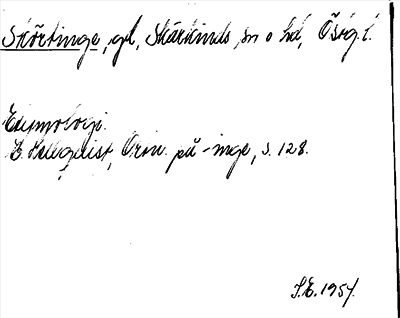 Skörtinge, gd, Skärkinds sn o hd, Östg.l.
Etymologi.
E. Hellquist, Ortn. på -inge, s. 128.
S.E. 1957.